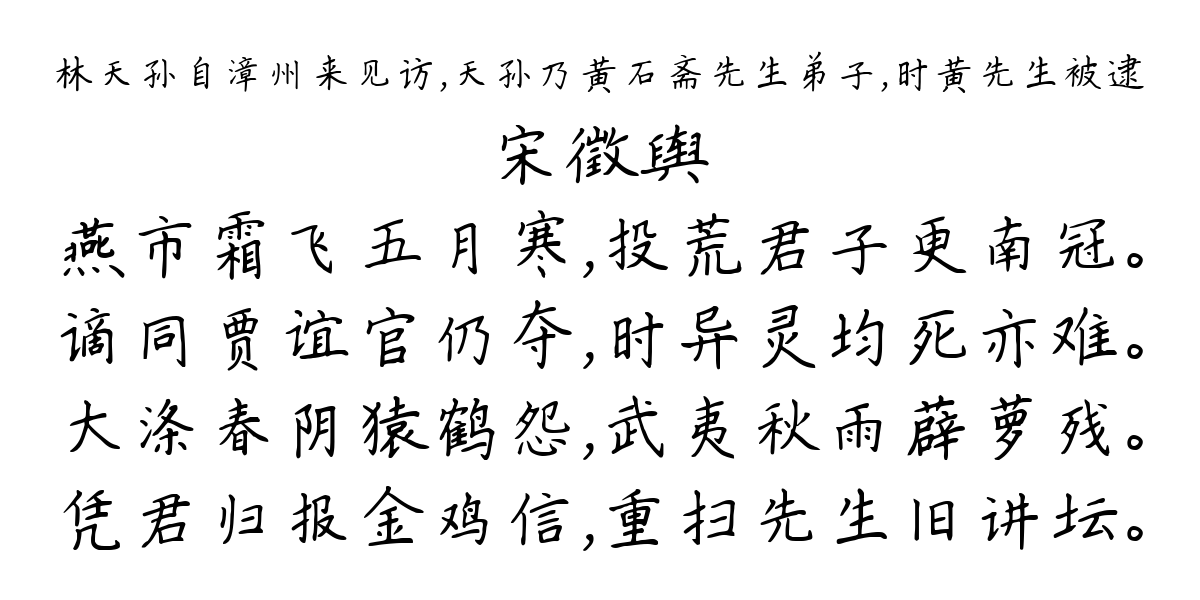 林天孙自漳州来见访,天孙乃黄石斋先生弟子,时黄先生被逮
宋徵舆
燕市霜飞五月寒,投荒君子更南冠。
谪同贾谊官仍夺,时异灵均死亦难。
大涤春阴猿鹤怨,武夷秋雨薜萝残。
凭君归报金鸡信,重扫先生旧讲坛。